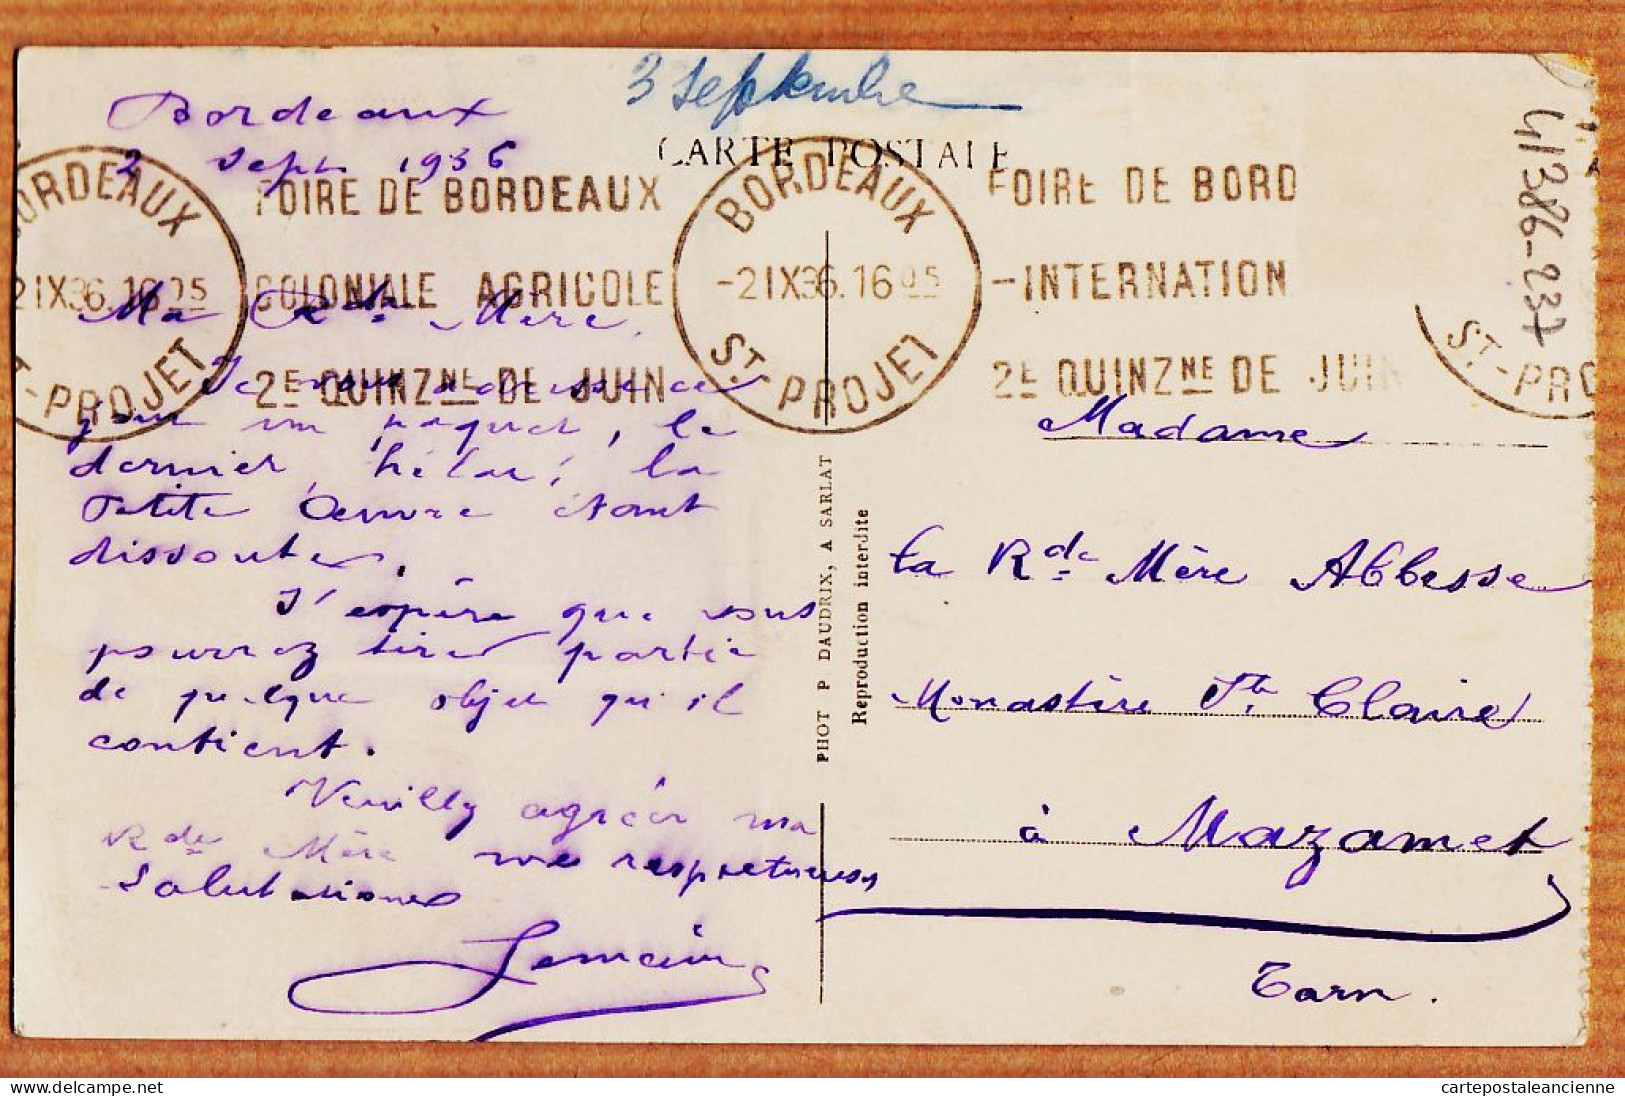 3 Septembre
Bordeaux
2 Sept 1936
CARTE POSTALE
BORDEAUX
2 IX 36. 16 05
ST-PROJET
FOIRE DE BORDEAUX
COLONIALE AGRICOLE
2E QUINZNE DE JUIN
BORDEAUX
-2 IX 36. 16 05
ST-PROJET
FOIRE DE BORD
-INTERNATION
2E QUINZNE DE JUIN
ST-PRO
41386-237
Ma Rde Mère,
Je vous adresse ce
jour un paquet, le
dernier, hélas, la
Petite Œuvre étant
dissoute.
J'espère que vous
pourrez tirer partie
de quelque objet qu'il
contient.
Veuillez agréer ma
Rde Mère mes respectueuses
salutations
PHOT P DAUDRIX, A SARLAT
Reproduction interdite
Madame
La Rde Mère Abbesse
Monastère Ste Claire
à Mazamet
Tarn.
cartepostaleancienne